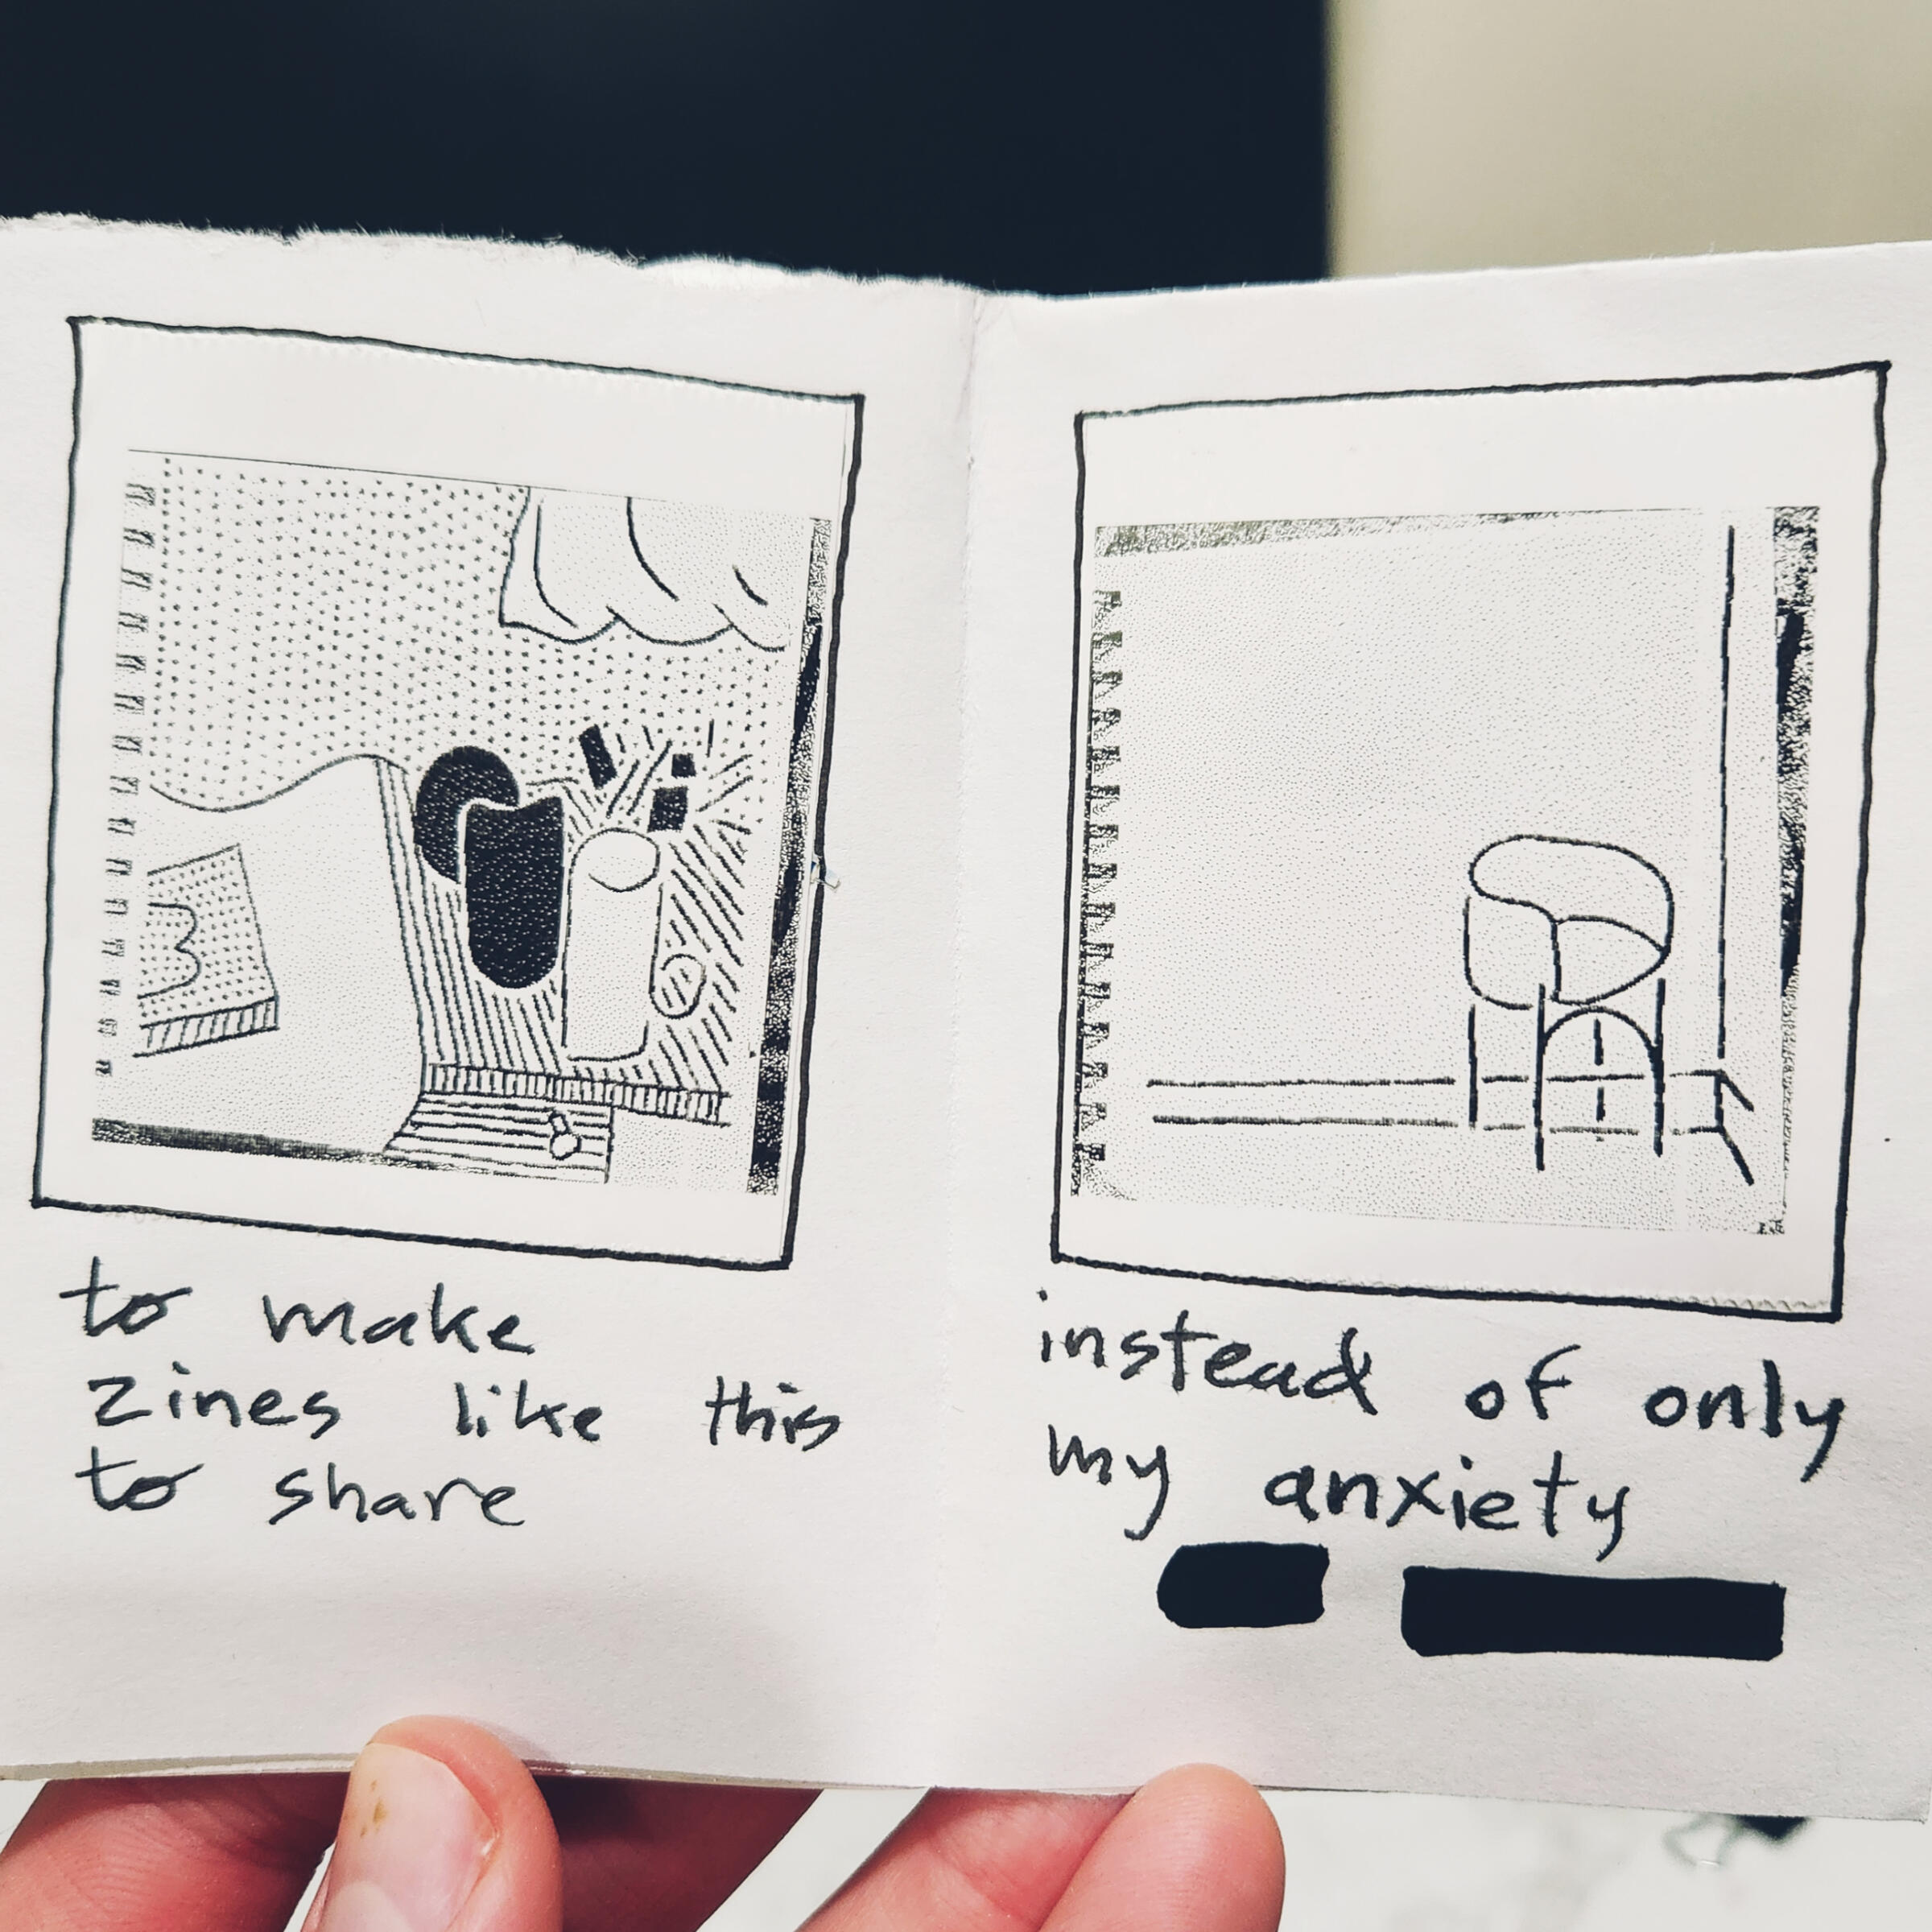 to make
zines like this
to share
instead of only
my anxiety